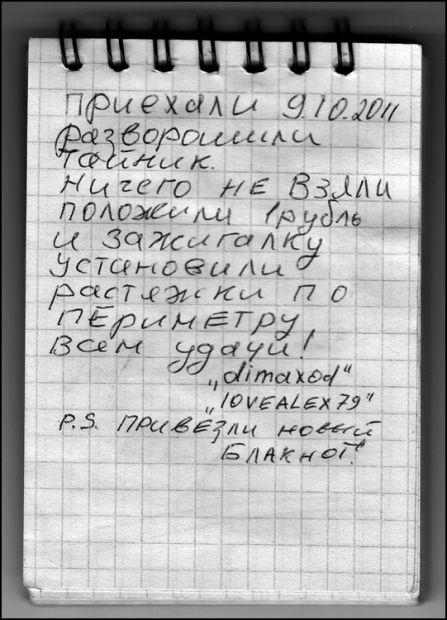 приехали 9.10.2011
разворошили
тайник.
ничего не взяли
положили 1рубль
и зажигалку
установили
растяжки по
периметру
всем удачи!
„dimaxod"
„lOVEALEX79"
P.S. привезли новый
блакнот!